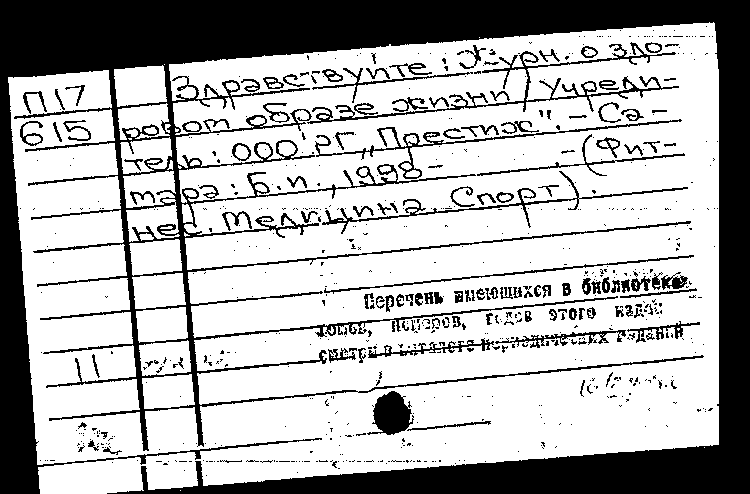 П17
615
Здравствуйте: Журн. о здо-
ровом образе жизни / Учреди-
тель: ООО РГ „Престиж". - Са-
мара: Б.и., 1998- . - (Фит-
нес. Медицина. Спорт).
Перечень имеющихся в библиотеке
томов, номеров, годов этого издан
смотри в каталоге периодических изданий
11